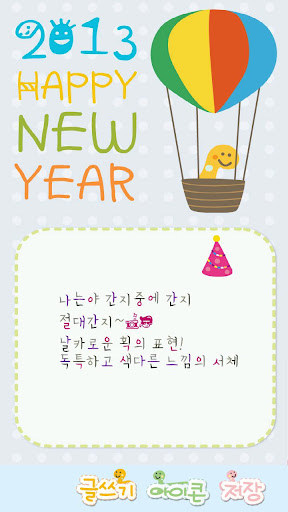 2013
HAPPY
NEW
YEAR
나는야 간지중에 간지
절대간지~
날카로운 획의 표현!
독특하고 색다른 느낌의 서체
글쓰기 아이콘 저장